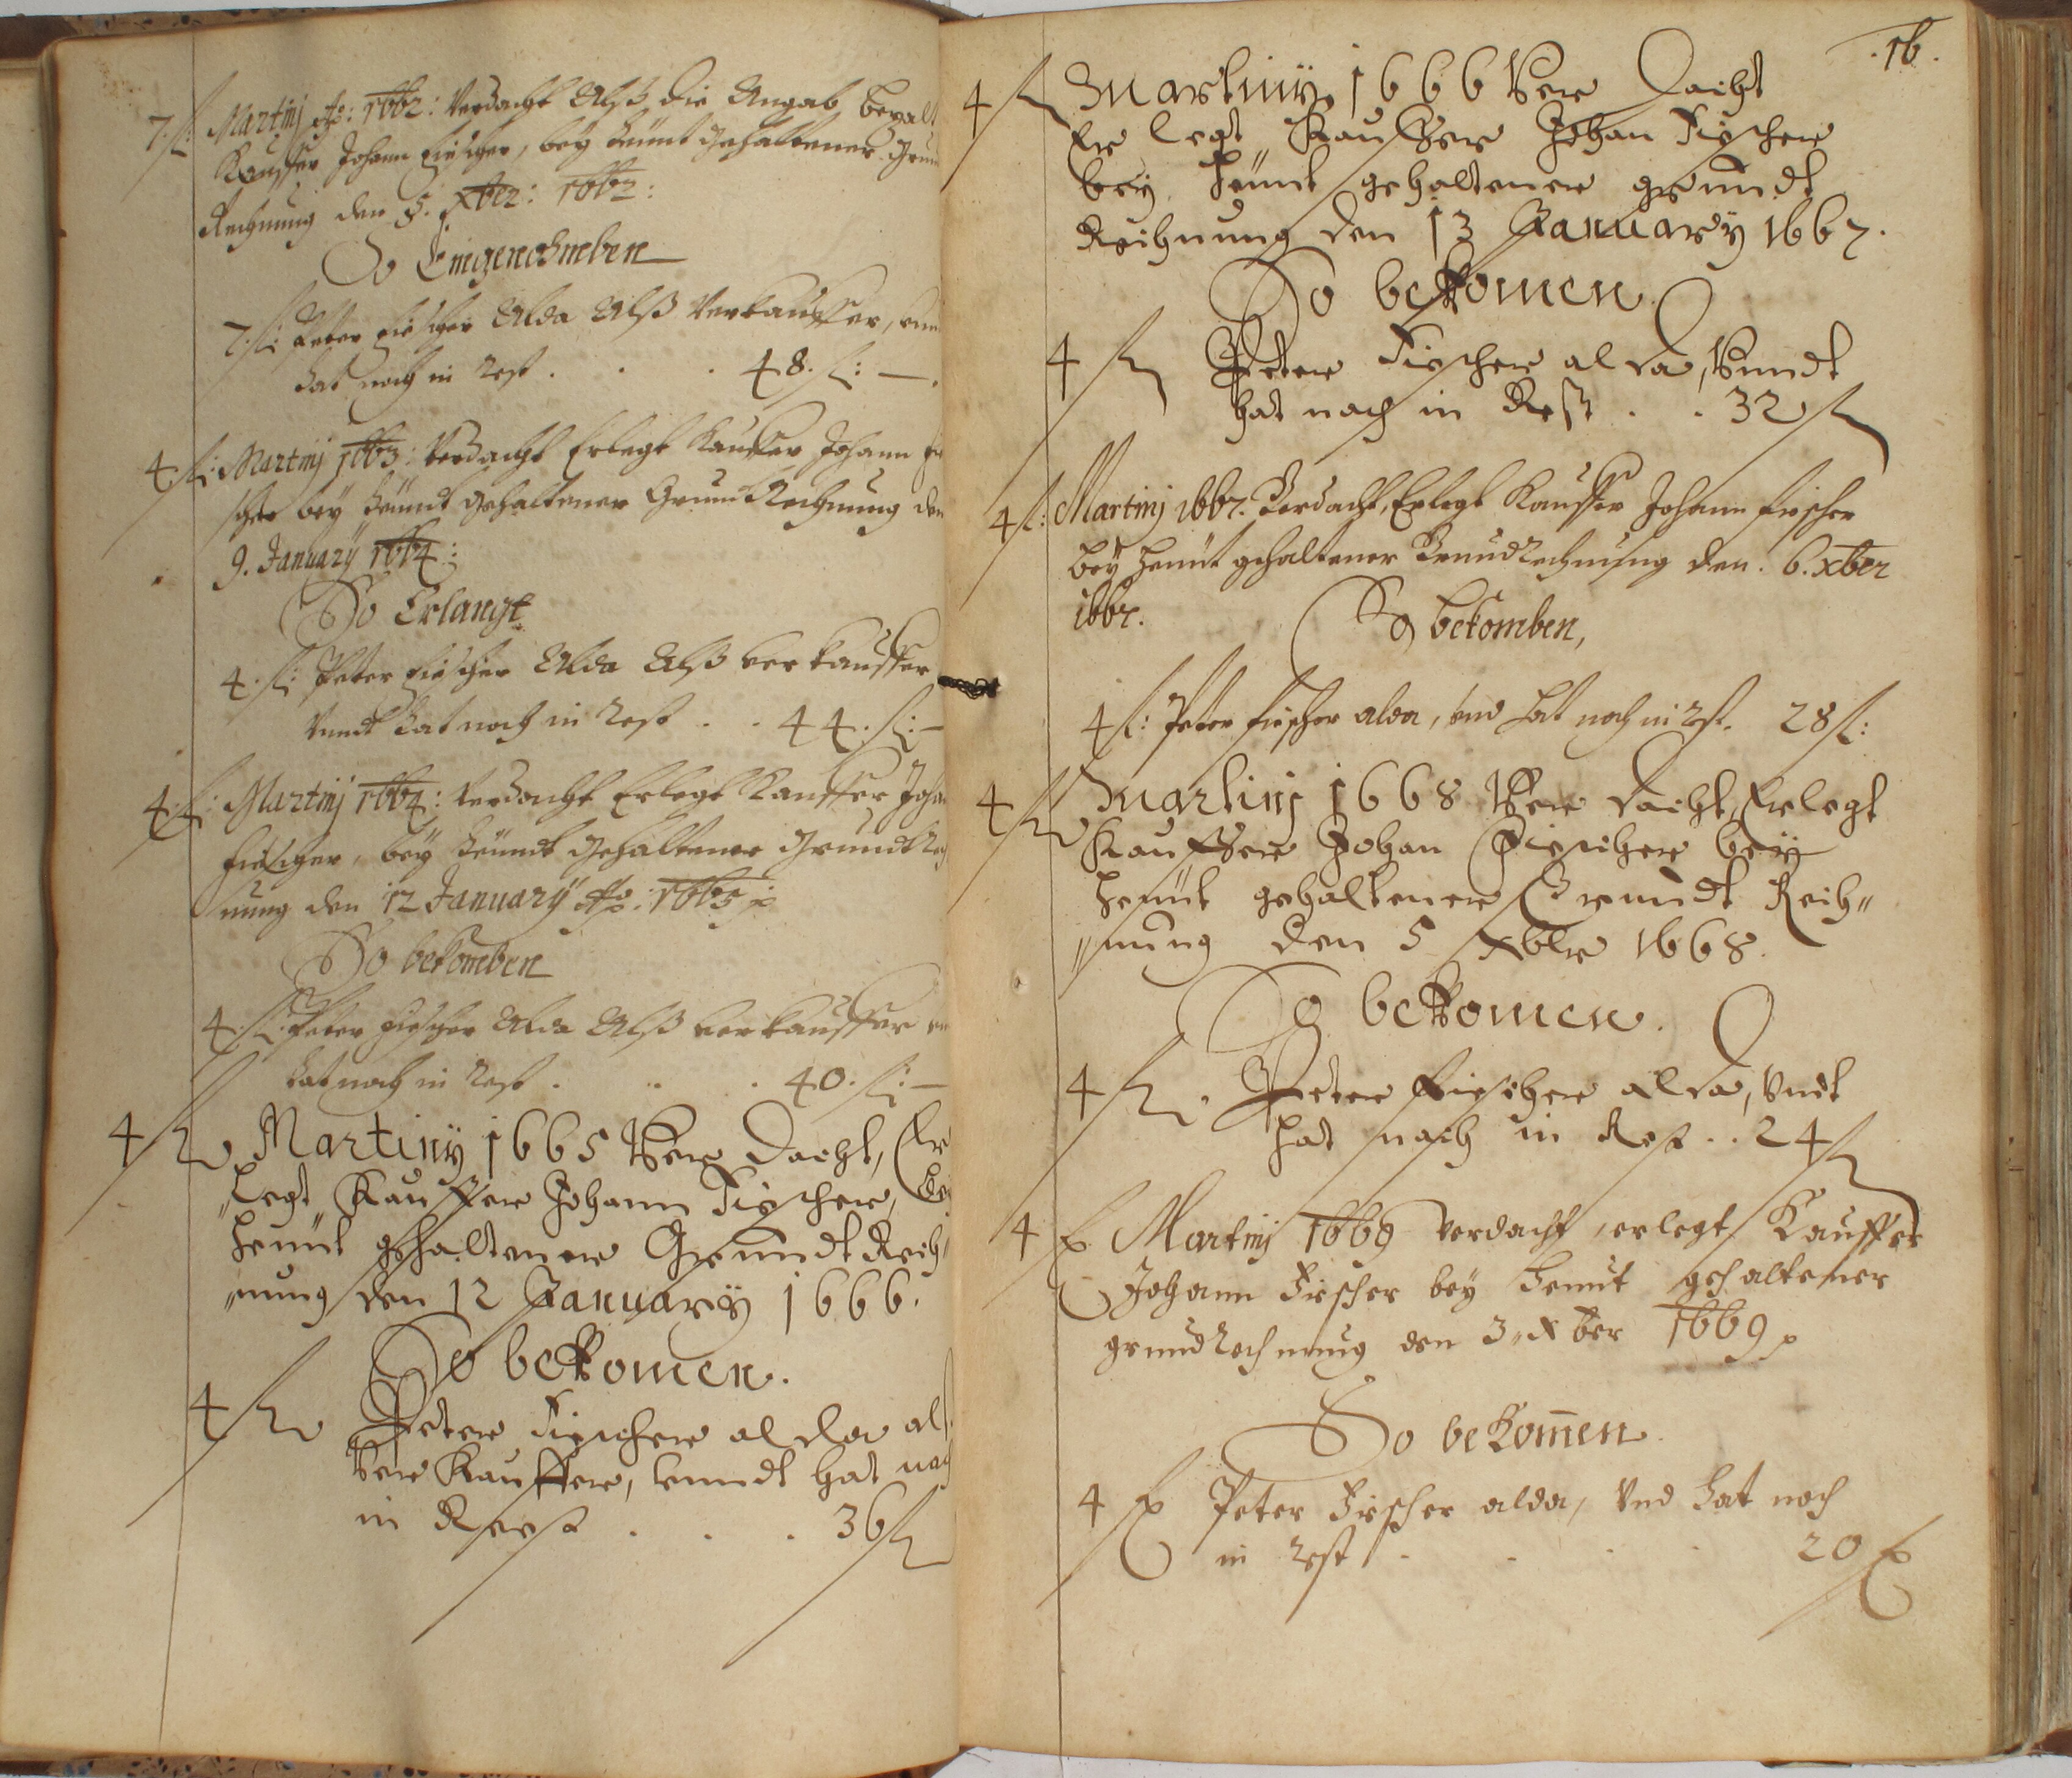 7. fl: Martinj Ao: 1662: Verdacht Alß die Angab bezalt
Kauffer Johann Fiescher, bey heündt gehaltener Grun
Rechnung den 5. xber: 1662:
So Eingeschrieben
7. fl: Peter Fiescher Alda Alß Verkauffer, vnn
hat noch in rest . . . 48. fl: —.
4. fl: Martinj 1663: Verdacht Erlegt Kauffer Johann Fi
scher bey heündt gehaltener Grundt Rechnung den
9. January 1664:
So Erlangt
4. fl: Peter Fiescher Alda Alß verkauffer
Vnndt hat noch in rest . . 44. fl: —
4. fl: Martinj 1664: Verdacht Erlegt Kauffer Joha
Fiescher, bey heündt gehaltener Grundt Rech
nung den 12 January Ao: 1665
So bekomben
4. fl: Peter Fiescher Alda Alß verkauffer vn
hat noch in rest . . . 40. fl: —
4 fl Martiny 1665 Ver dacht, Er
"legt Kauffer Johann Fiescher, be
heündt gehaltener Grundt Rech"
"nung den 12 January 1666.
So bekomen.
4 fl Peter Fiescher al da alß
Ver Kauffer, vnndt hat noch
in Reest . . . 36 fl
.16.
4 fl Martiny 1666 Ver dacht
Er legt Kauffer Johan Fischer
bey heündt gehaltener grundt
Rechnung den 13 January 1667.
So bekomen.
4 fl Peter Fischer al da, Vnndt
hat noch in Rest . . 32 fl
4 fl: Martinj 1667. Verdacht, Erlegt Kauffer Johann Fischer
bey heünt gehaltener Grundrechnung den. 6. xber
1667.
So bekomben,
4 fl: Peter Fischer alda, vnd hat noch in rest. 28 fl:
4 fl Martinj 1668 Ver dacht, Erlegt
Kauffer Johan Fiescher bey
heünt gehaltener Grundt Rech"
"nung den 5 xbler 1668.
So bekomen.
4 fl. Peter Fiescher alda, Vndt
hat noch in Rest . . 24 fl
4 fl Martinj 1669 verdacht, erlegt Kauffer
Johann Fischer bey heünt gehaltener
grundrechnung den 3. xber 1669
So bekom̄en.
4 fl Peter Fischer alda, Vnd hat noch
in rest . . . . 20 fl